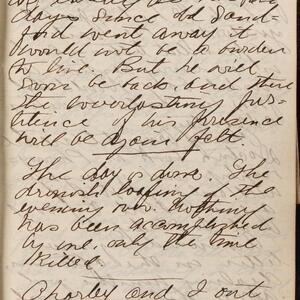 days since old Sand-
ford went away it
would not be a burden
to live. But he will
soon be back and then
the everlasting pes-
tilence of his presence
will be again felt.
The day is done. The
drowsish of the
evening over. Nothing
has been accomplished
by me. only the time
killed
Charley and I out